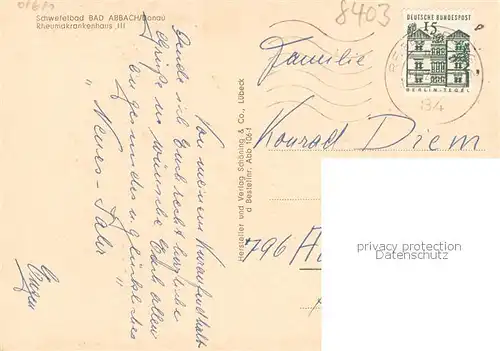 8403
Schwefelbad BAD ABBACH/Donau
Rheumakrankenhaus III
DEUTSCHE BUNDESPOST
15
BERLIN-TEGEL
Von meinem Kuraufenthalt
sende ich Euch recht herzliche
Grüße u. wünsche Euch allen
ein gesundes u glückliches
" Neues - Jahr "
Eugen
Hersteller und Verlag Schöning & Co., Lübeck
Bestellnr. Abb 106
Familie
Konrad Diem
796
privacy protection